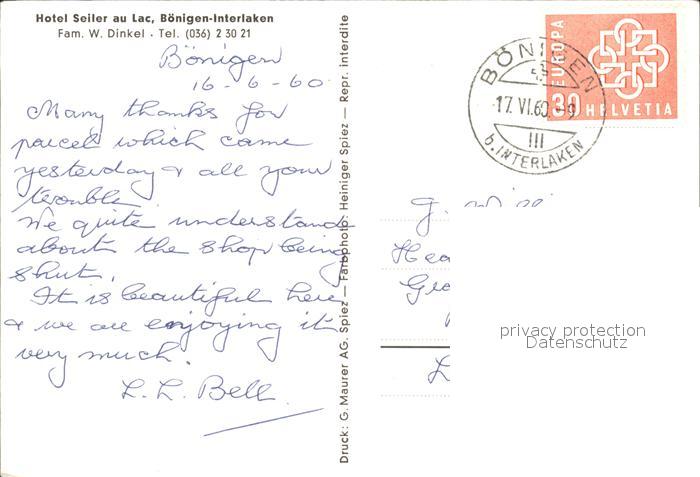 Hotel Seiler au Lac, Bönigen-Interlaken
Fam. W. Dinkel · Tel. (036) 2 30 21
Bönigen
16-6-60
Many thanks for
parcel which came
yesterday & all your
trouble.
We quite understand
about the shop being
shut.
It is beautiful here
& we are enjoying it
very much.
L. L. Bell
Druck: G. Maurer AG. Spiez — Farbphoto: Heiniger Spiez — Repr. interdite
EUROPA
30 HELVETIA
BÖNIGEN
17. VI. 60 - 9
III
b. INTERLAKEN
G.
Hea
Gro
L
privacy protection
Datenschutz